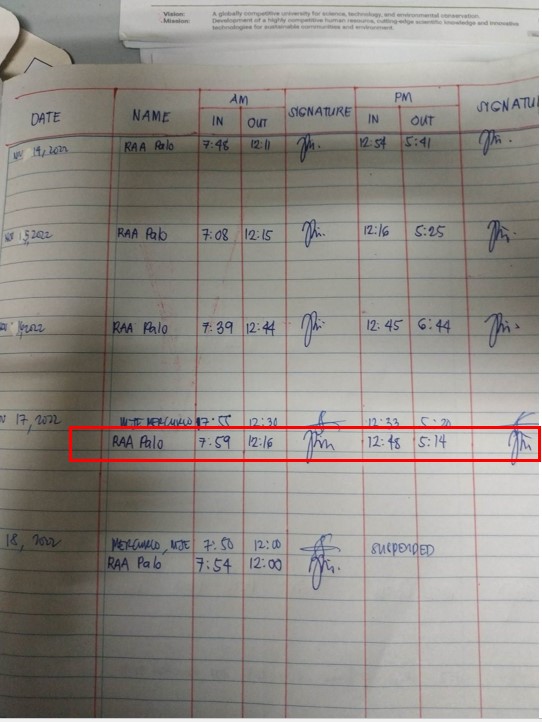 Vision: A globally competitive university for science, technology, and environmental conservation.
Mission: Development of a highly competitive human resource, cutting-edge scientific knowledge and innovative
technologies for sustainable communities and environment.
AM PM
DATE NAME IN OUT SIGNATURE IN OUT SIGNATU
14, 2022 RAA Palo 7:48 12:11 12:54 5:41
15, 2022 RAA Palo 7:08 12:15 12:16 5:25
16, 2022 RAA Palo 7:39 12:44 12:45 6:44
17, 2022 MJE MERCURIO 7:55 12:30 12:33 5:20
RAA Palo 7:59 12:16 12:48 5:14
18, 2022 MERCURIO, MJE 7:50 12:00 SUSPENDED
RAA Palo 7:54 12:00